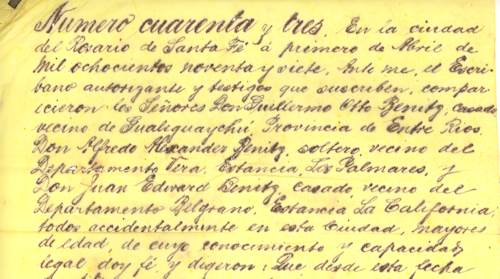 Numero cuarenta y tres. En la ciudad
del Rosario de Santa Fé á primero de Abril de
mil ochocientos noventa y siete, Ante me, el Escri-
bano autorizante y testigos que suscriben, compar-
icieron los Señores Don Guillermo Otto Benitz, casado
vecino de Gualeguaychú, Provincia de Entre Rios,
Don Alfredo Alexander Benitz, soltero, vecino del
Departamento Vera, Estancia, Los Palmares, y
Don Juan Edward Benitz, casado vecino del
Departamento Belgrano, Estancia La California;
todos accidentalmente en esta Ciudad, mayores
de edad, de cuyo conocimiento y capacidad
legal doy fé y digeron: Que desde esta fecha